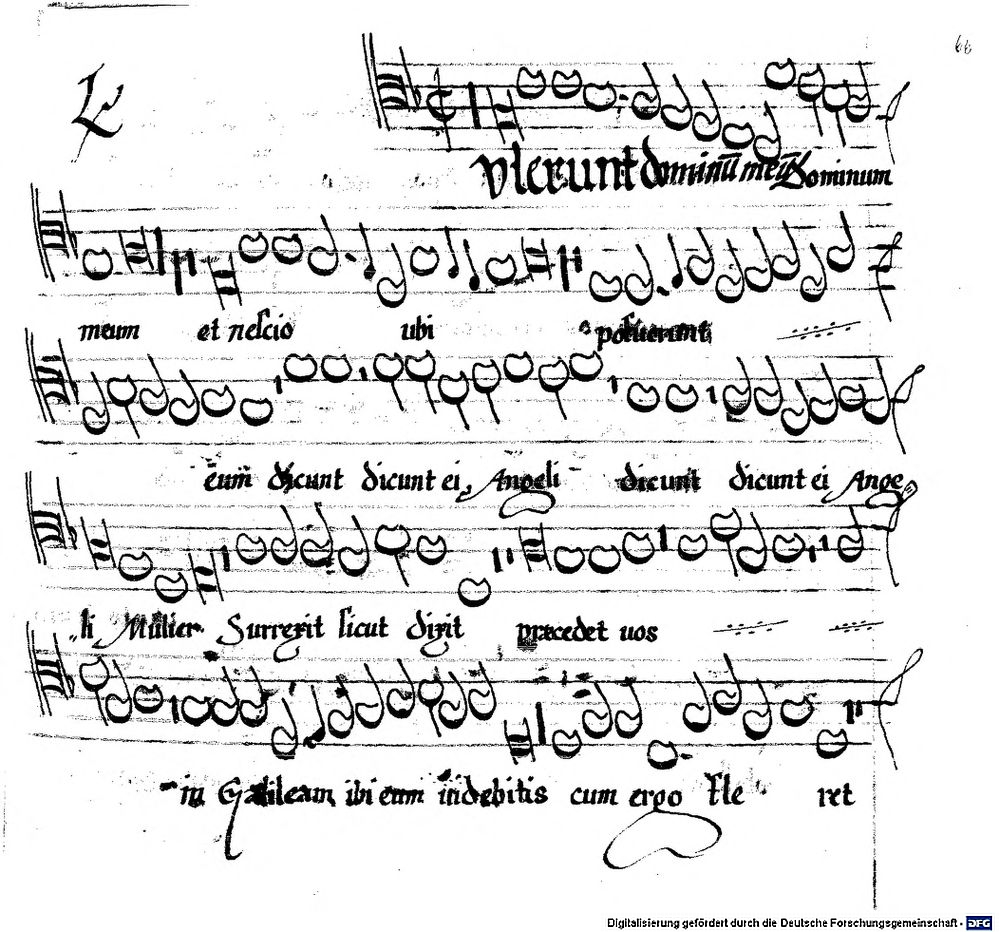 66
Vlerunt dominū meū Dominum
meum et nescio ubi posuerunt
eum dicunt dicunt ei Angeli dicunt dicunt ei Ange
li Mulier Surrexit sicut dixit præcedet uos
in Galileam ibi eum uidebitis cum ergo fle ret
Digitalisierung gefördert durch die Deutsche Forschungsgemeinschaft - DFG